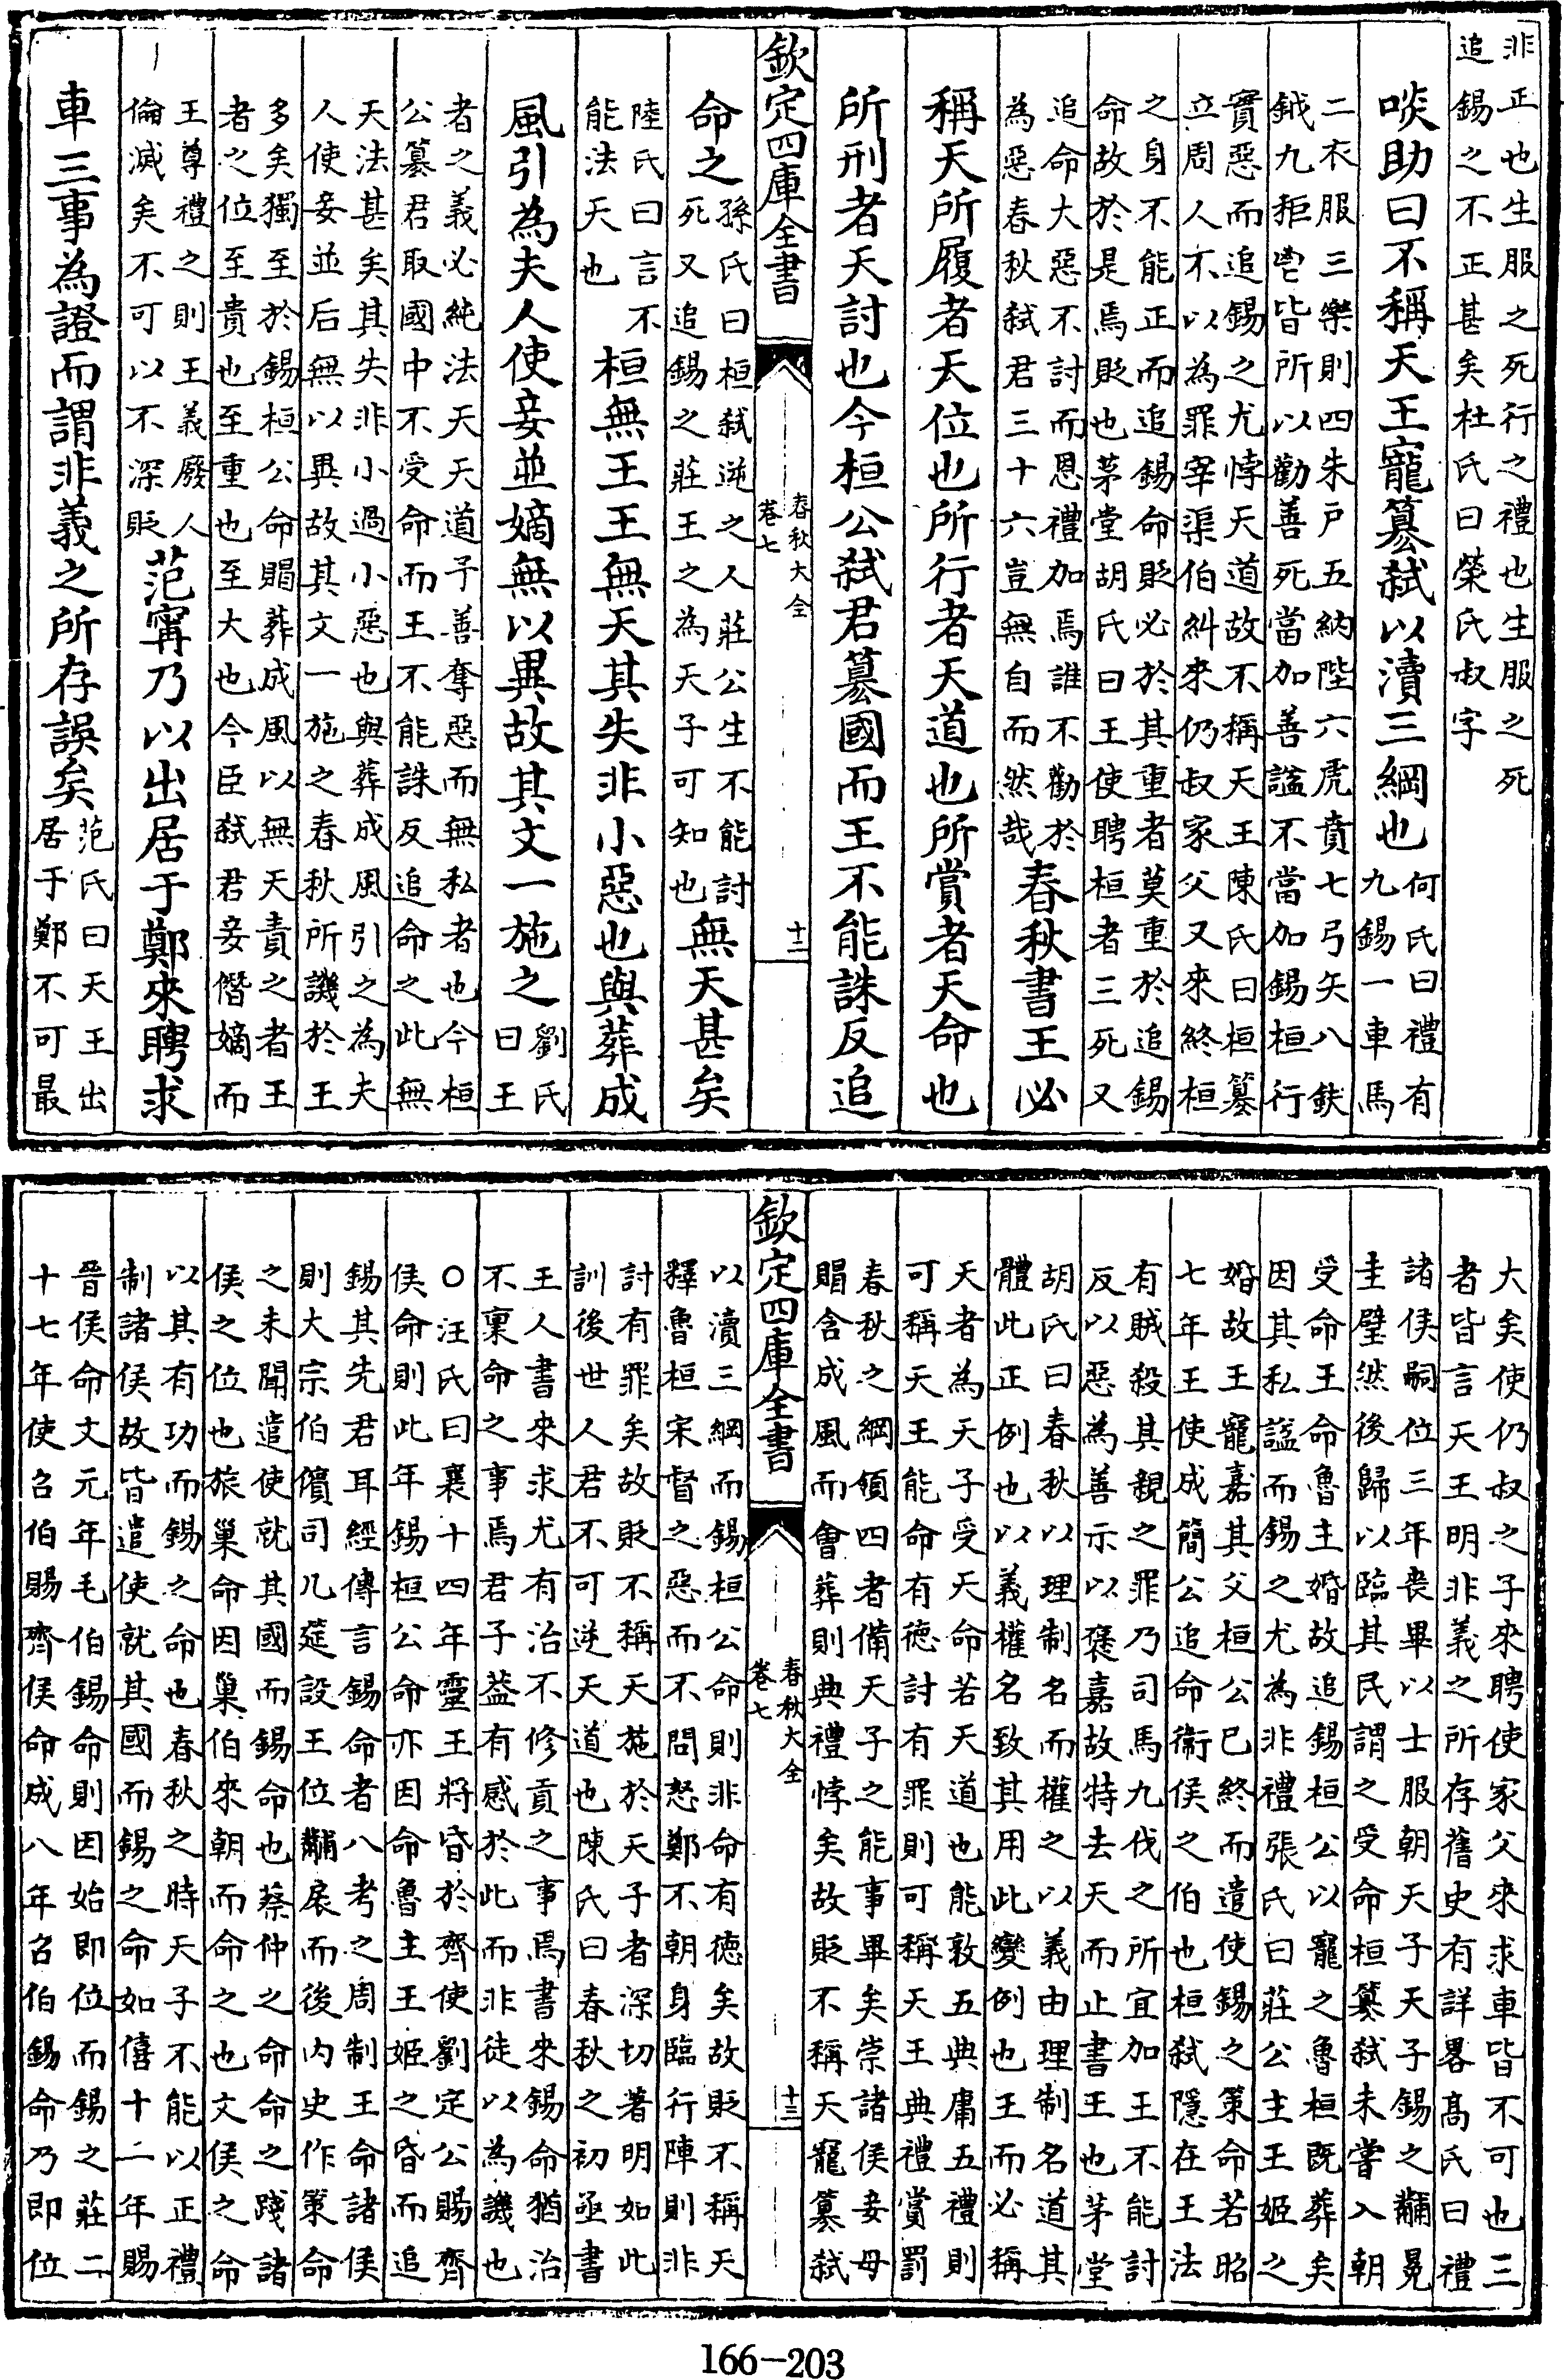 非正也生服之死行之禮也生服之死
追錫之不正甚矣杜氏曰榮氏叔字
啖助曰不稱天王寵篡弒以瀆三綱也
何氏曰禮有
九錫一車馬
二衣服三樂則四朱戶五納陛六虎賁七弓矢八鈇
鉞九拒鬯皆所以勸善死當加善諡不當加錫桓行
實惡而追錫之尤悖天道故不稱天王陳氏曰桓篡
立周人不以為罪宰渠伯糾來仍叔家父又來終桓
之身不能正而追錫命貶必於其重者莫重於追錫
命故於是焉貶也茅堂胡氏曰王使聘桓者三死又
追命大惡不討而恩禮加焉誰不勸於
為惡春秋弒君三十六豈無自而然哉
春秋書王必
稱天所履者天位也所行者天道也所賞者天命也
所刑者天討也今桓公弒君篡國而王不能誅反追
欽定四庫全書
春秋大全
卷七
十二
命之
孫氏曰桓弒逆之人莊公生不能討
死又追錫之莊王之為天子可知也
無天甚矣
陸氏曰言不
能法天也
桓無王王無天其失非小惡也與葬成
風引為夫人使妾並嫡無以異故其文一施之
劉氏
曰王
者之義必純法天天道予善奪惡而無私者也今桓
公篡君取國中不受命而王不能誅反追命之此無
天法甚矣其失非小過小惡也與葬成風引之為夫
人使妾並后無以異故其文一施之春秋所譏於王
多矣獨至於錫桓公命賵葬成風以無天責之者王
者之位至貴也至重也至大也今臣弒君妾僭嫡而
王尊禮之則王義廢人
倫滅矣不可以不深貶
范甯乃以出居于鄭來聘求
車三事為證而謂非義之所存誤矣
范氏曰天王出
居于鄭不可最
大矣使仍叔之子來聘使家父來求車皆不可也三
者皆言天王明非義之所存舊史有詳畧髙氏曰禮
諸侯嗣位三年喪畢以士服朝天子天子錫之黼冕
圭璧然後歸以臨其民謂之受命桓篡弒未嘗入朝
受命王命魯主婚故追錫桓公以寵之魯桓既葬矣
因其私諡而錫之尤為非禮張氏曰莊公主王姬之
婚故王寵嘉其父桓公已終而遣使錫之策命若昭
七年王使成簡公追命衞侯之伯也桓弒隱在王法
有賊殺其親之罪乃司馬九伐之所宜加王不能討
反以惡為善示以褒嘉故特去天而止書王也茅堂
胡氏曰春秋以理制名而權之以義由理制名道其
體此正例也以義權名致其用此變例也王而必稱
天者為天子受天命若天道也能敦五典庸五禮則
可稱天王能命有徳討有罪則可稱天王典禮賞罰
春秋之綱領四者備天子之能事畢矣崇諸侯妾母
賵含成風而會葬則典禮悖矣故貶不稱天寵篡弒
欽定四庫全書
春秋大全
卷七
十三
以瀆三綱而錫桓公命則非命有徳矣故貶不稱天
釋魯桓宋督之惡而不問怒鄭不朝身臨行陣則非
討有罪矣故貶不稱天施於天子者深切著明如此
訓後世人君不可逆天道也陳氏曰春秋之初亟書
王人書來求尤有治不修貢之事焉書來錫命猶治
不稟命之事焉君子葢有感於此而非徒以為譏也
○汪氏曰襄十四年靈王將昏於齊使劉定公賜齊
侯命則此年錫桓公命亦因命魯主王姬之昏而追
錫其先君耳經傳言錫命者八考之周制王命諸侯
則大宗伯儐司几筵設王位黼扆而後内史作策命
之未聞遣使就其國而錫命也蔡仲之命命之踐諸
侯之位也旅巢命因巢伯來朝而命之也文侯之命
以其有功而錫之命也春秋之時天子不能以正禮
制諸侯故皆遣使就其國而錫之命如僖十二年賜
晉侯命文元年毛伯錫命則因始即位而錫之莊二
十七年使召伯賜齊侯命成八年召伯錫命乃即位
166-203